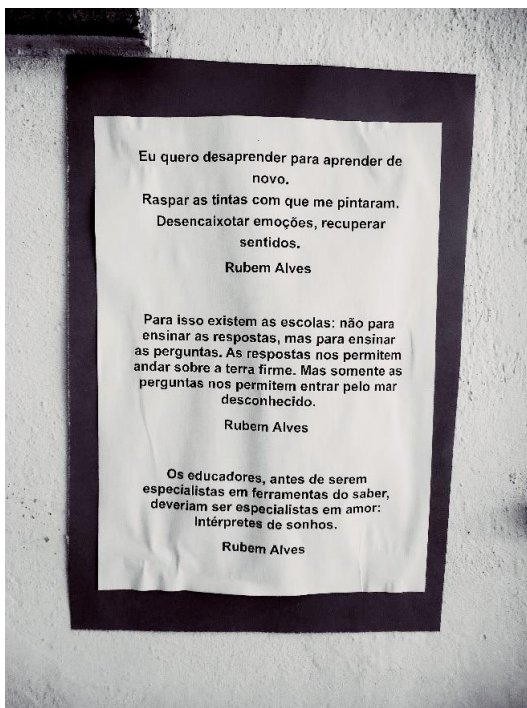 Eu quero desaprender para aprender de
novo.
Raspar as tintas com que me pintaram.
Desencaixotar emoções, recuperar
sentidos.
Rubem Alves
Para isso existem as escolas: não para
ensinar as respostas, mas para ensinar
as perguntas. As respostas nos permitem
andar sobre a terra firme. Mas somente as
perguntas nos permitem entrar pelo mar
desconhecido.
Rubem Alves
Os educadores, antes de serem
especialistas em ferramentas do saber,
deveriam ser especialistas em amor:
Intérpretes de sonhos.
Rubem Alves